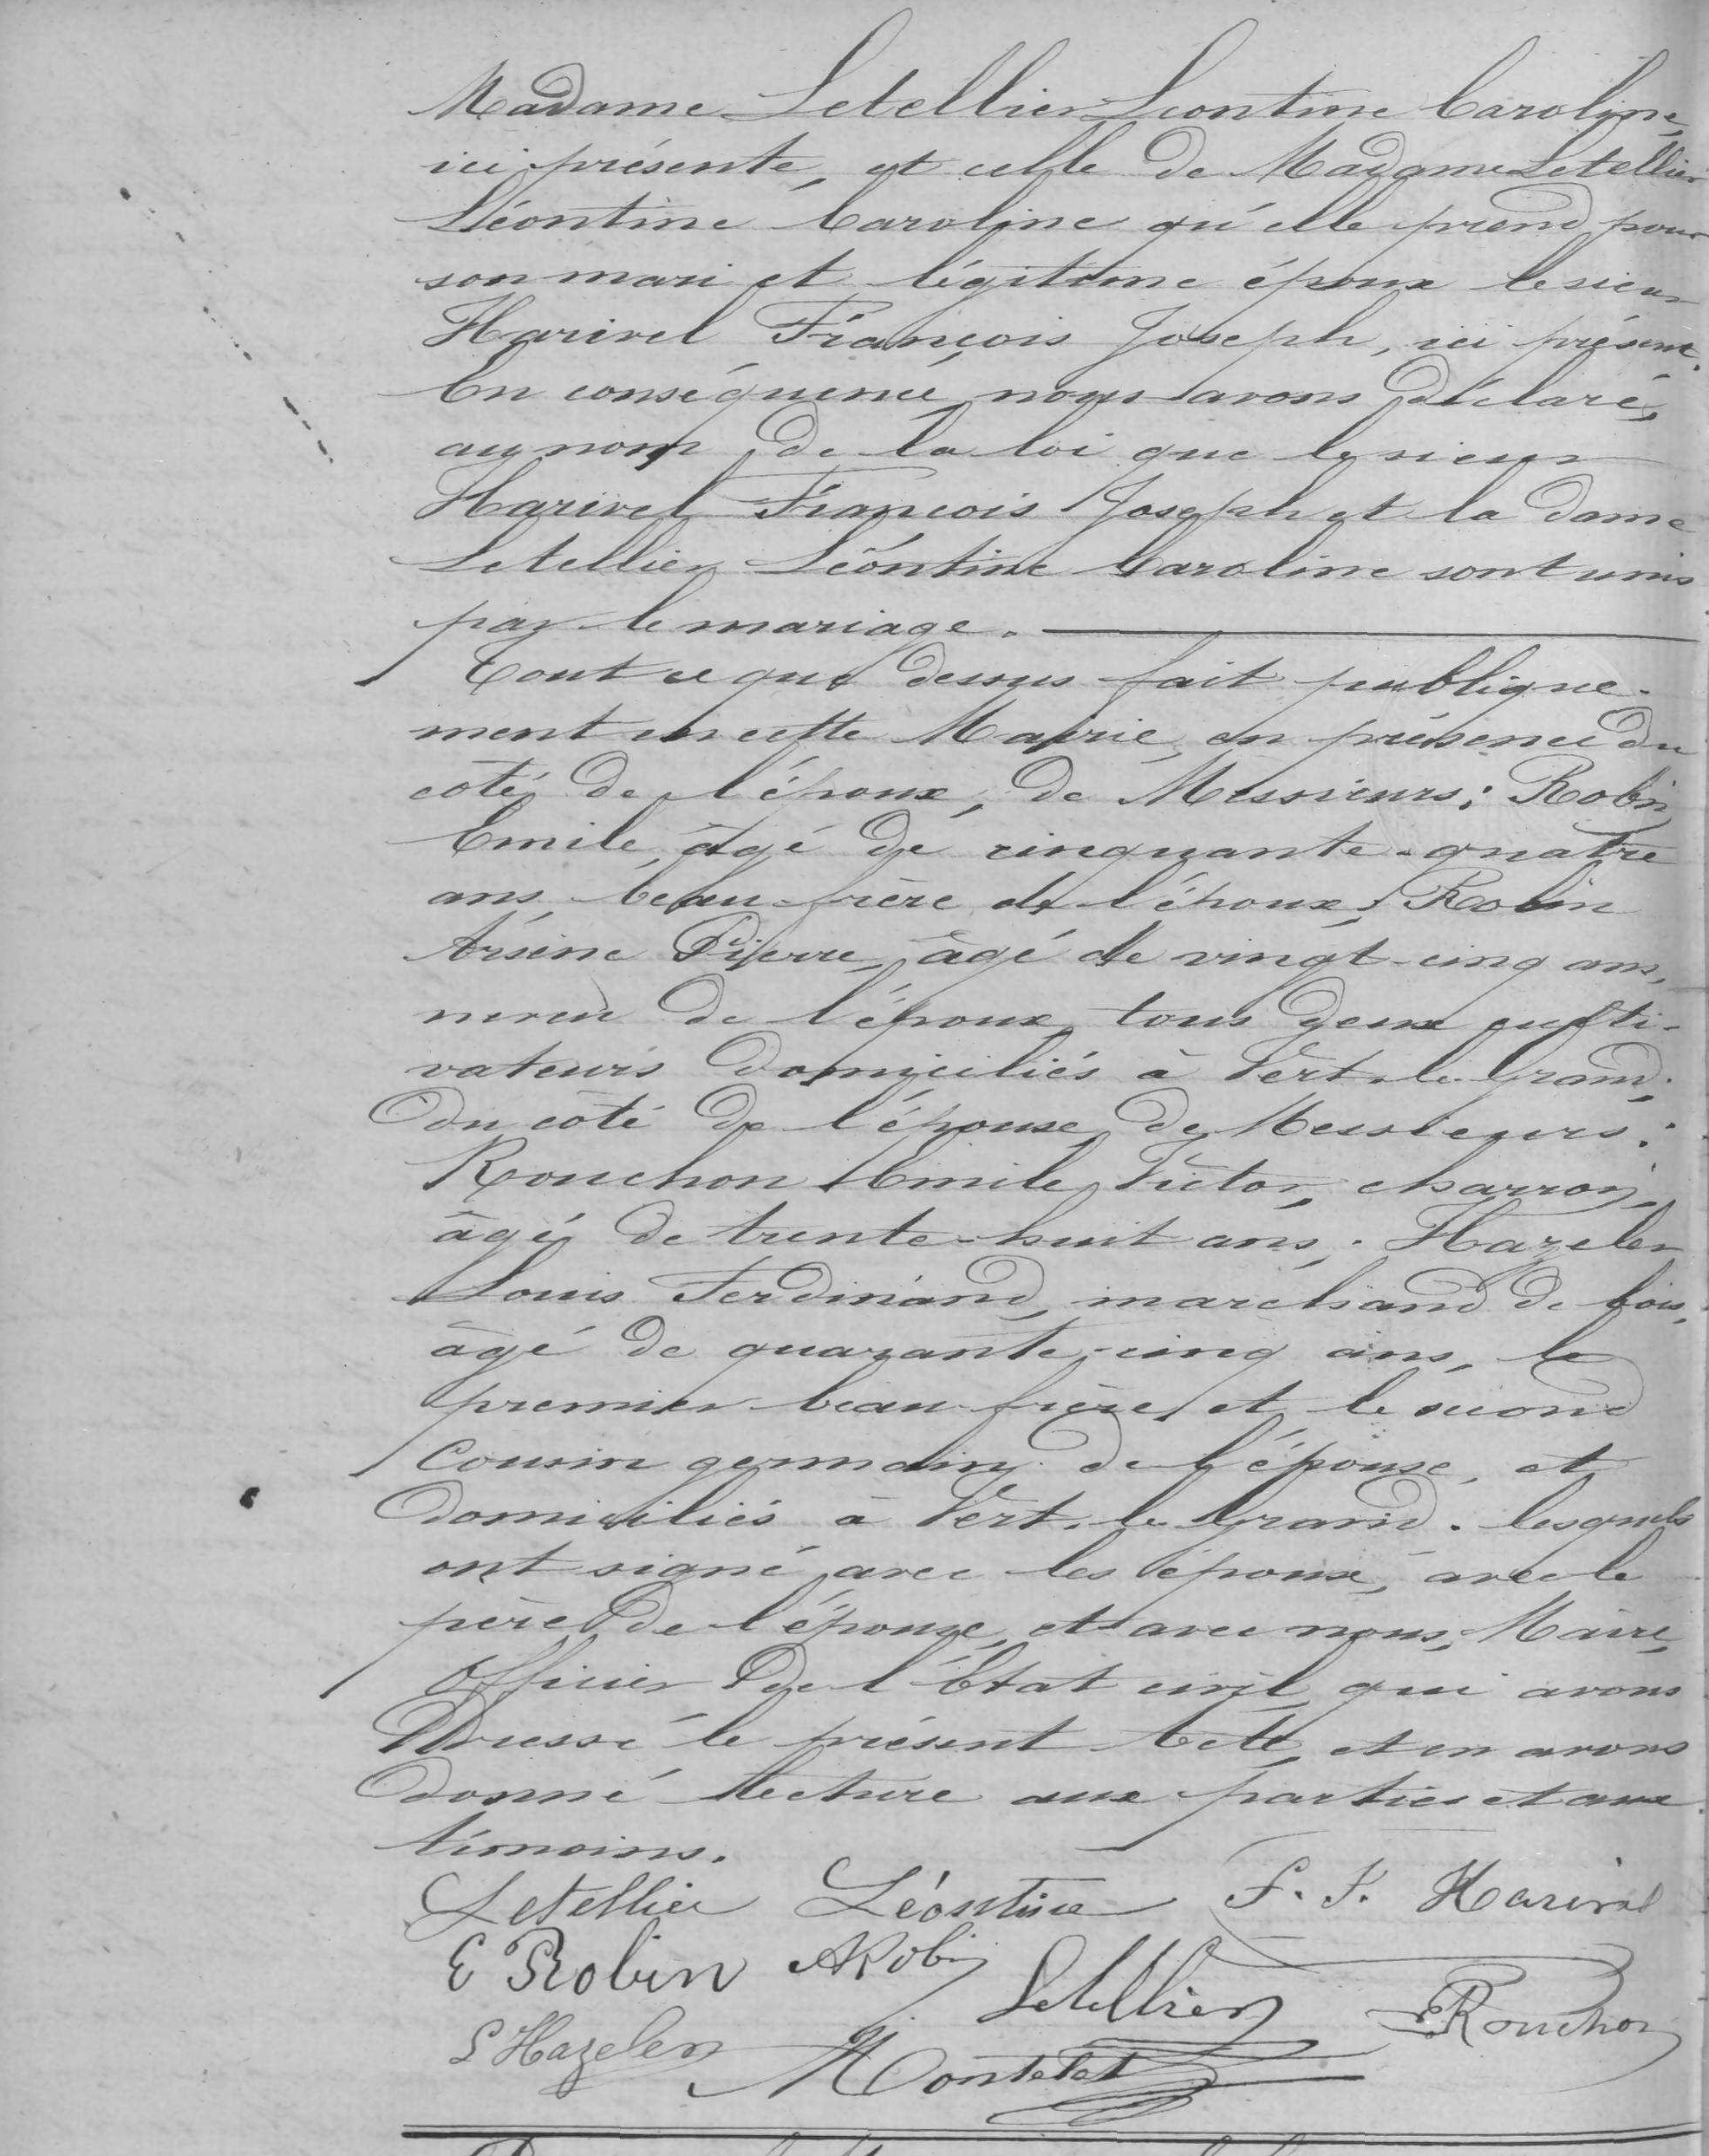 Madame Letellier Léontine Caroline,
ici présente, et celle de Madame Letellier
Léontine Caroline qu'elle prend pour
son mari et légitime époux le sieur
Harivel François Joseph, ici présent.
En conséquence nous avons déclaré,
au nom de la loi que le sieur
Harivel François Joseph et la dame
Letellier Léontine Caroline sont unis
par le mariage.
Tout ce que dessus fait publique-
ment en cette Mairie, en présence du
côté de l'époux, de Messieurs: Robin
Emile, âgé de cinquante-quatre
ans, beau-frère de l'époux; Robin
Arsène Pierre, âgé de vingt-cinq ans,
neveu de l'époux, tous deux culti-
vateurs domiciliés à Vert-le-Grand;
du côté de l'épouse, de Messieurs:
Rouchon Emile Victor, charron,
âgé de trente-huit ans; Hazeler
Louis Ferdinand, marchand de bois,
âgé de quarante-cinq ans, le
premier beau-frère, et le second
cousin germain de l'épouse, et
domiciliés à Vert-le-Grand. lesquels
ont signé avec les époux, avec le
père de l'épouse, et avec nous, Maire,
Officier de l'Etat civil, qui avons
dressé le présent acte, et en avons
donné lecture aux parties et aux
témoins.
Letellier Léontine F. J. Harivel
E Robin ARobin Letellier ERouchon
L Hazeler Montelet